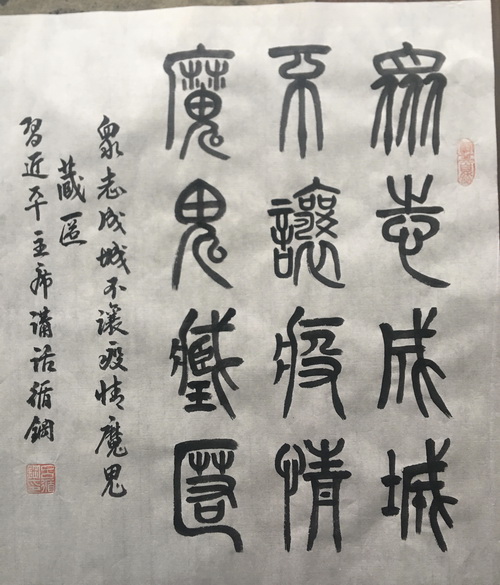 眾志成城
不讓疫情
魔鬼藏匿
眾志成城不讓疫情魔鬼
藏匿
習近平主席講話循鋼